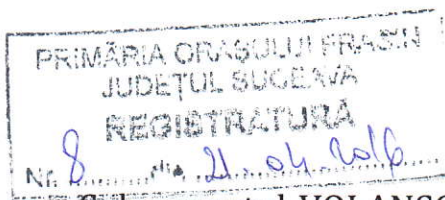 PRIMĂRIA ORAȘULUI FRASIN
JUDEȚUL SUCEAVA
REGISTRATURA
Nr. 8 din 21.04.2016